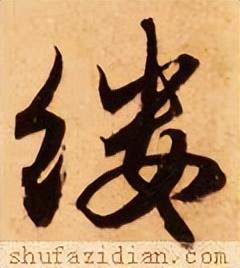 缕
shufazidian.com